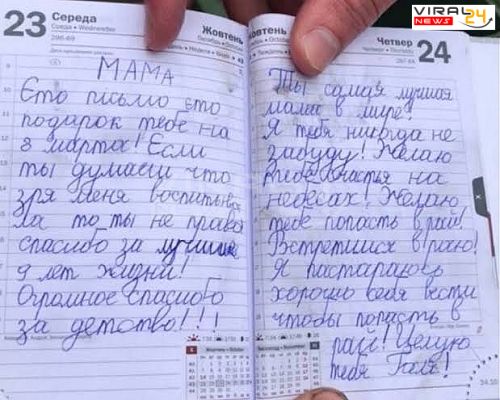 VIRAL 24
NEWS
23 Середа
Жовтень
296-69
МАМА
Ето письмо ето
подарок тебе на
8 марта! Если
ты думаеш что
зря меня воспитыва
ла то ты не права
спасибо за лучшие
9 лет жизни!
Огромное спасибо
за детство!!!
Жовтень
Четвер 24
Ты самая лучшая
мама в мире!
Я тебя никогда не
забуду! Желаю
тебе счастья на
небесах! Желаю
тебе попасть в рай!
Встретимся в раю!
Я постараюсь
хорошо себя вести
чтобы попасть в
рай! Целую
тебя Галя!